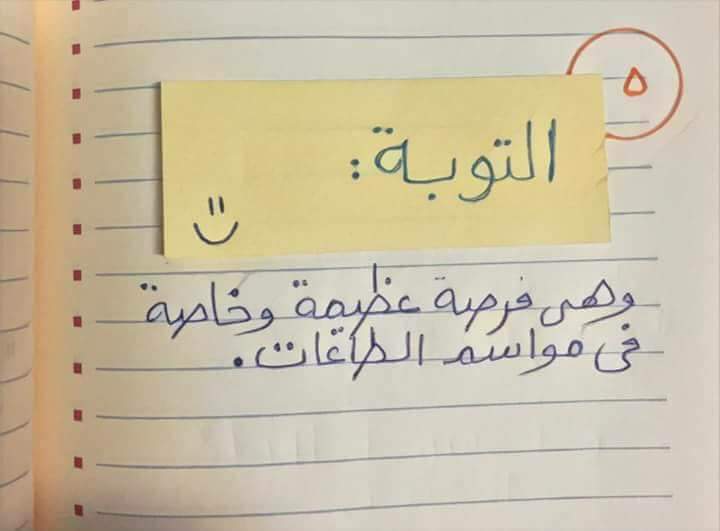 ٥
التوبة:
وهى فرصة عظيمة وخاصة
فى مواسم الطاعات.